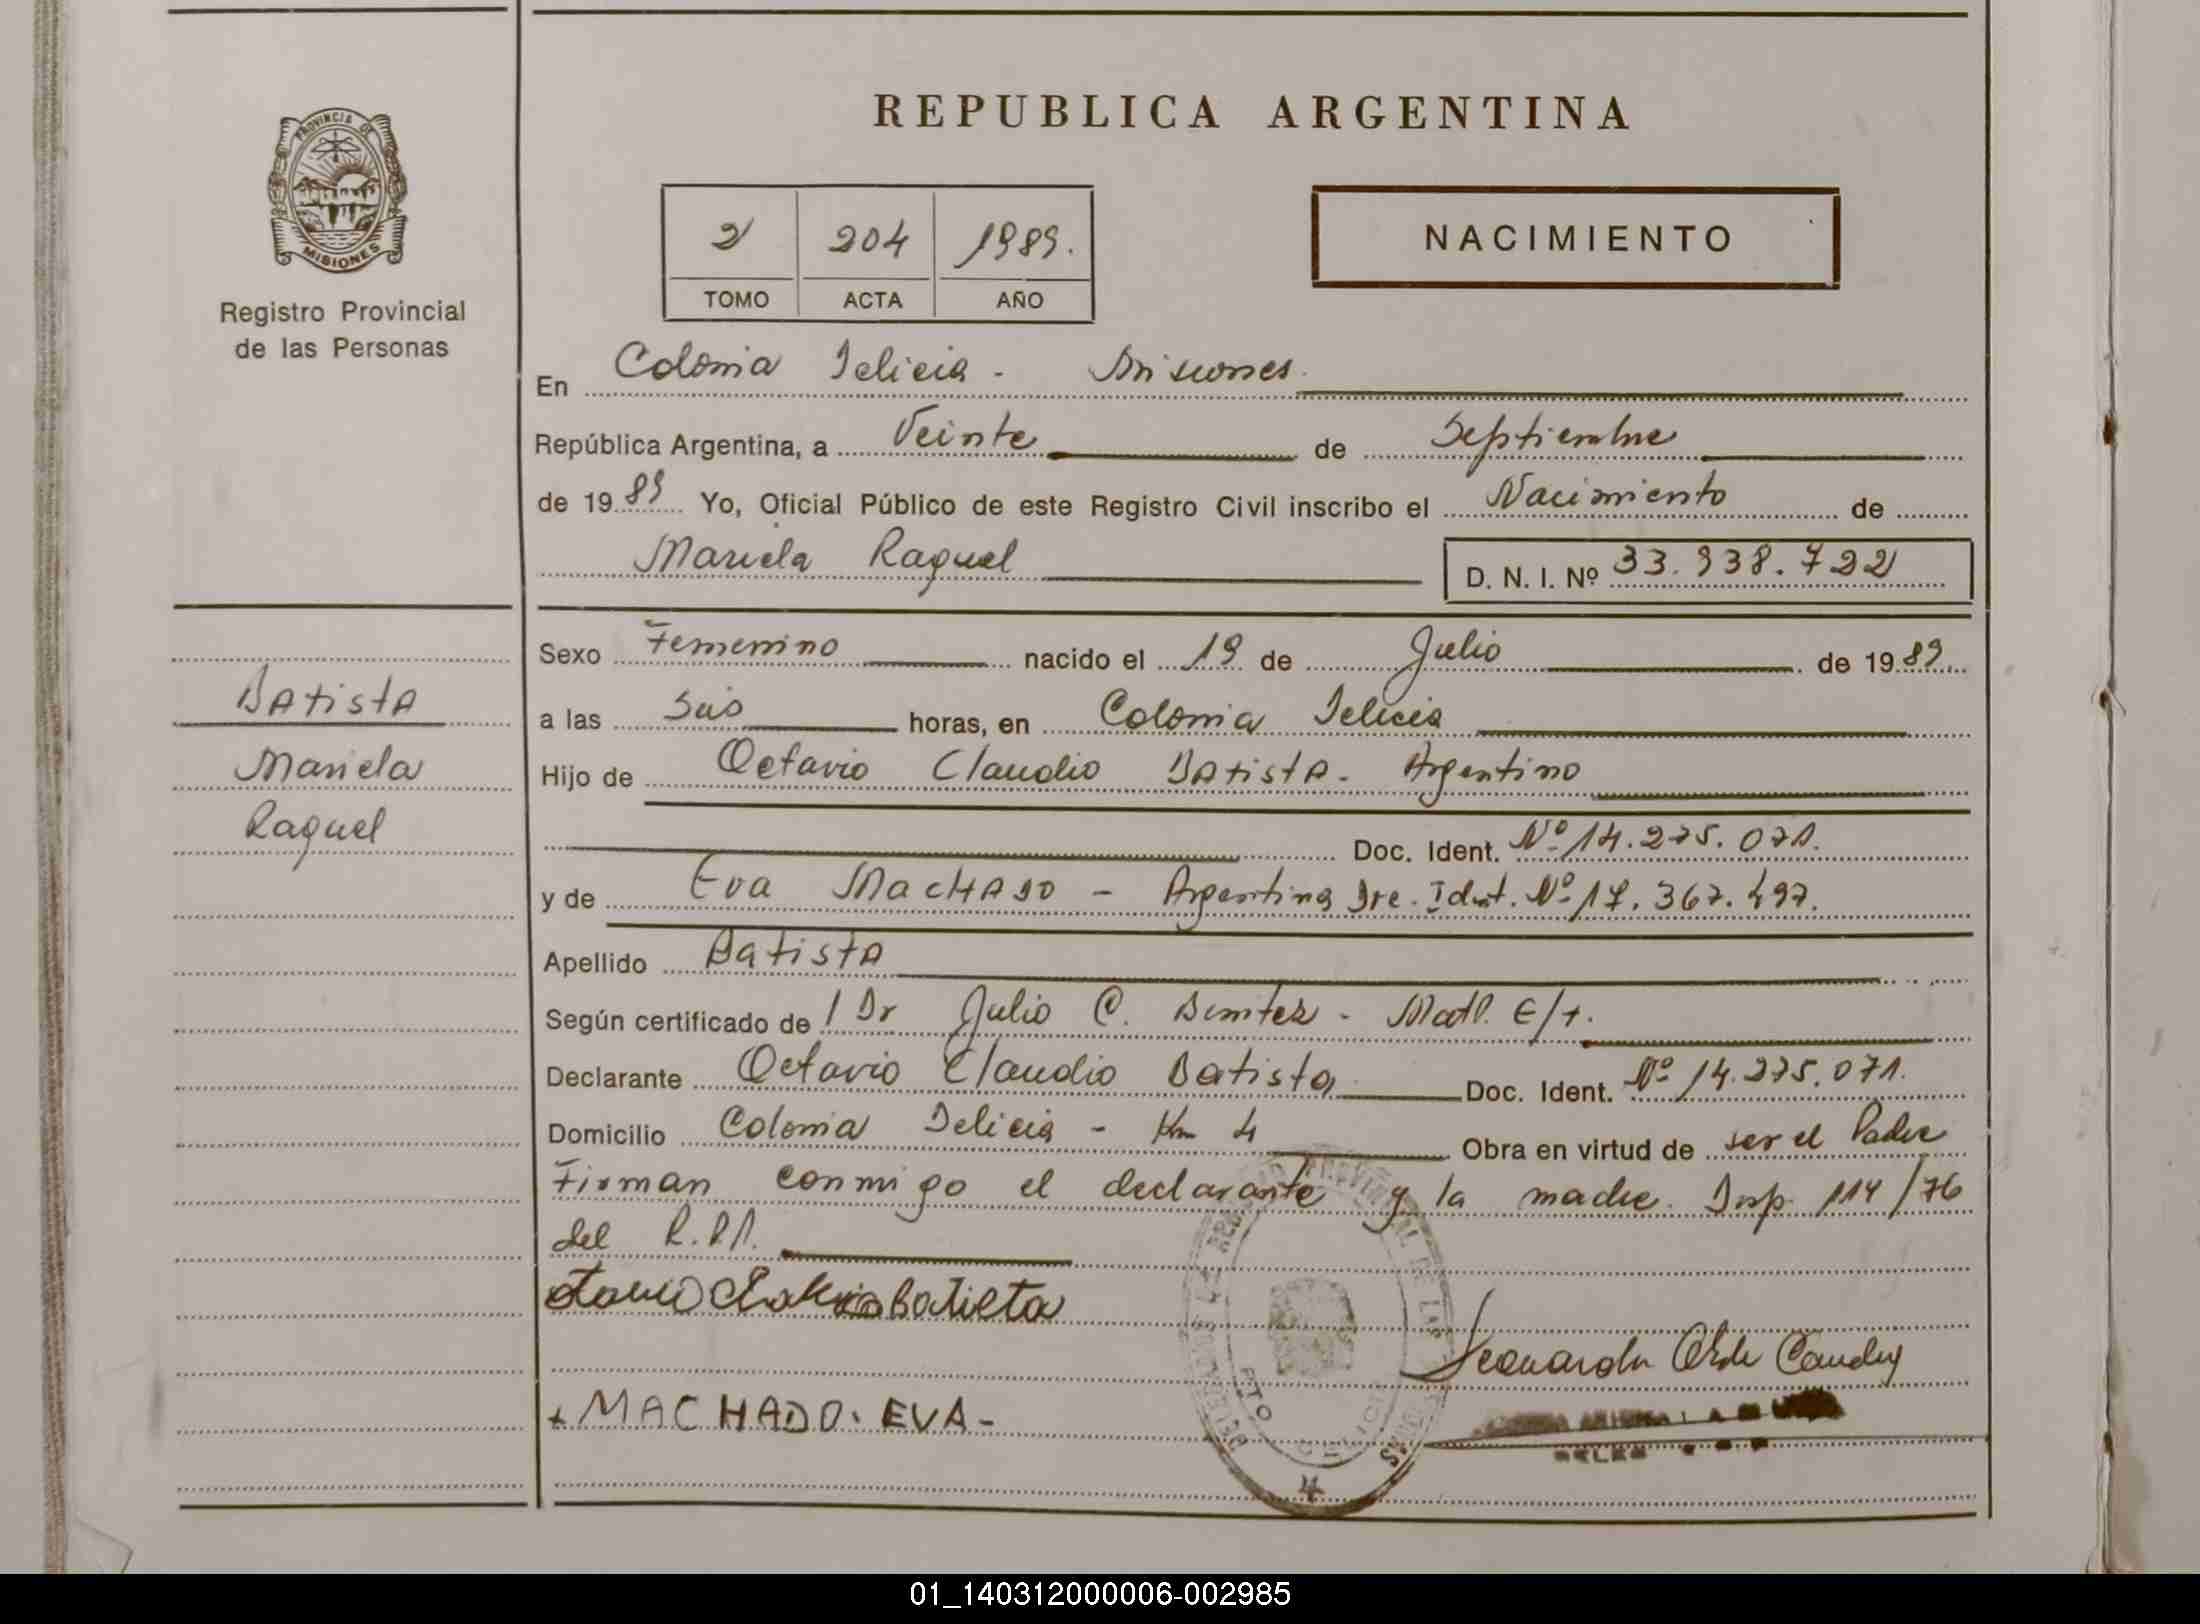 PROVINCIA DE
MISIONES
Registro Provincial
de las Personas
REPUBLICA ARGENTINA
2 204 1989.
TOMO ACTA AÑO
NACIMIENTO
En Colonia Delicia - Misiones
República Argentina, a Veinte de Septiembre
de 1989 Yo, Oficial Público de este Registro Civil inscribo el Nacimiento de
Mariela Raquel D. N. I. Nº 33.938.722
Batista
Mariela
Raquel
Sexo Femenino nacido el 19 de Julio de 1989
a las Seis horas, en Colonia Delicia
Hijo de Octavio Claudio Batista - Argentino
Doc. Ident. Nº 14.275.071.
y de Eva Machado - Argentina Dre. Ident. Nº 17.367.497.
Apellido Batista
Según certificado de / Dr Julio C. Benitez - Matr. E/t.
Declarante Octavio Claudio Batista Doc. Ident. Nº 14.275.071.
Domicilio Colonia Delicia - Km 4 Obra en virtud de ser el Padre
Firman conmigo el declarante y la madre. Disp. 114/76
del R.P.P.
Claudio Batista
+ MACHADO. EVA -
DELICIA
01_140312000006-002985